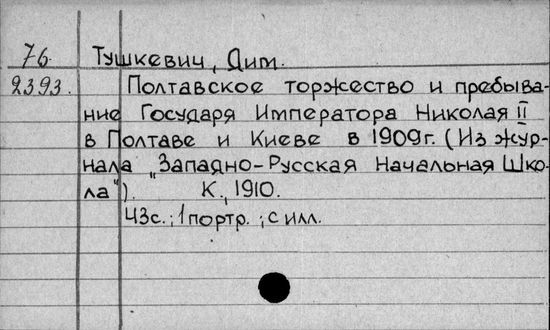 76. Тушкевич, Дим.
2393. Полтавское торжество и пребыва-
ние Государя Императора Николая II
в Полтаве и Киеве в 1909г. (Из жур-
нала „Западно-Русская Начальная Шко-
ла"). К., 1910.
43с.; 1 портр.; с илл.